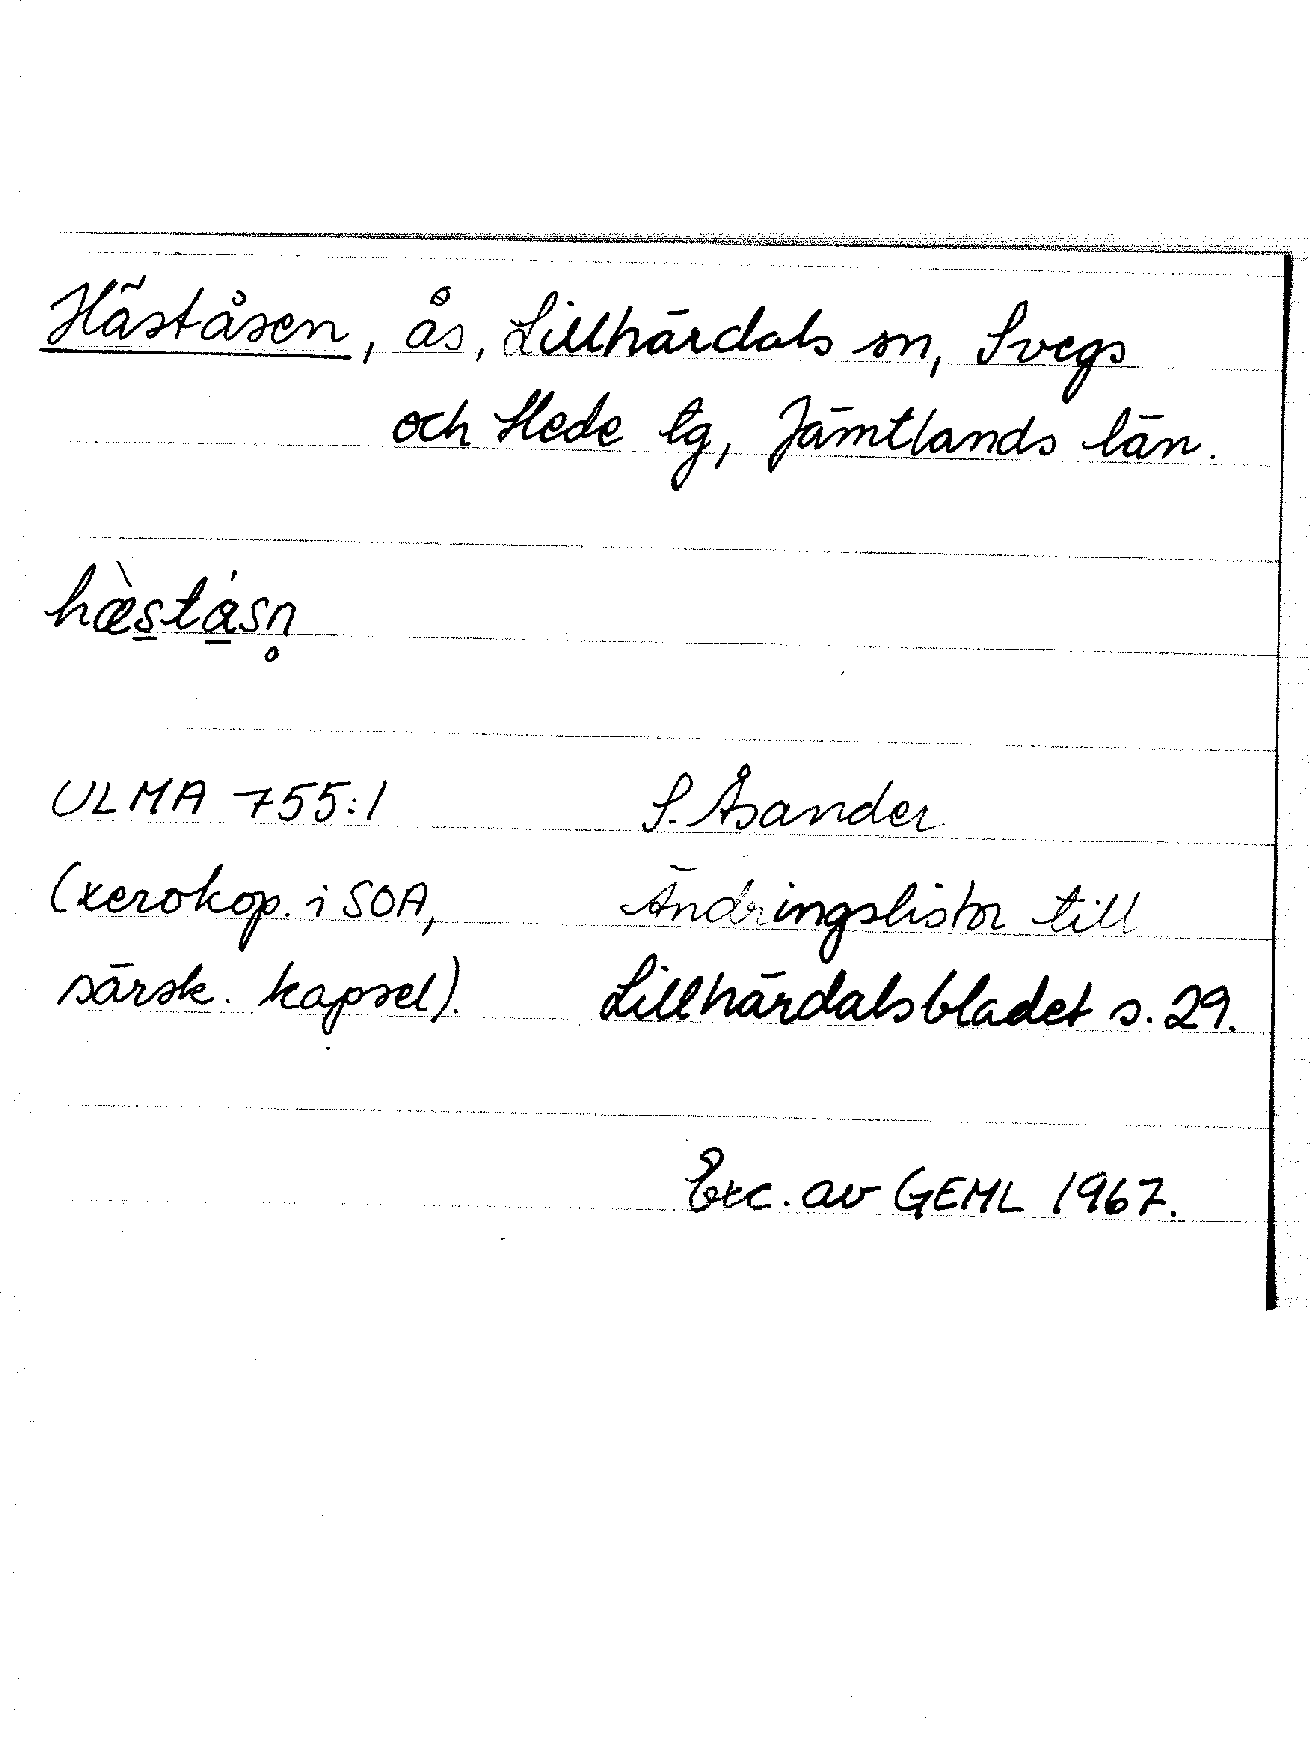 Häståsen, ås, Lillhärdals sn, Svegs
och Hede tg, Jämtlands län.
hæ̀s̲tá̲sn̥
ULMA 755:1 S. Åsander
(xerokop. i SOA, Ändringslistor till
särsk. kapsel). Lillhärdalsbladet s. 29.
Exc. av GEML 1967.